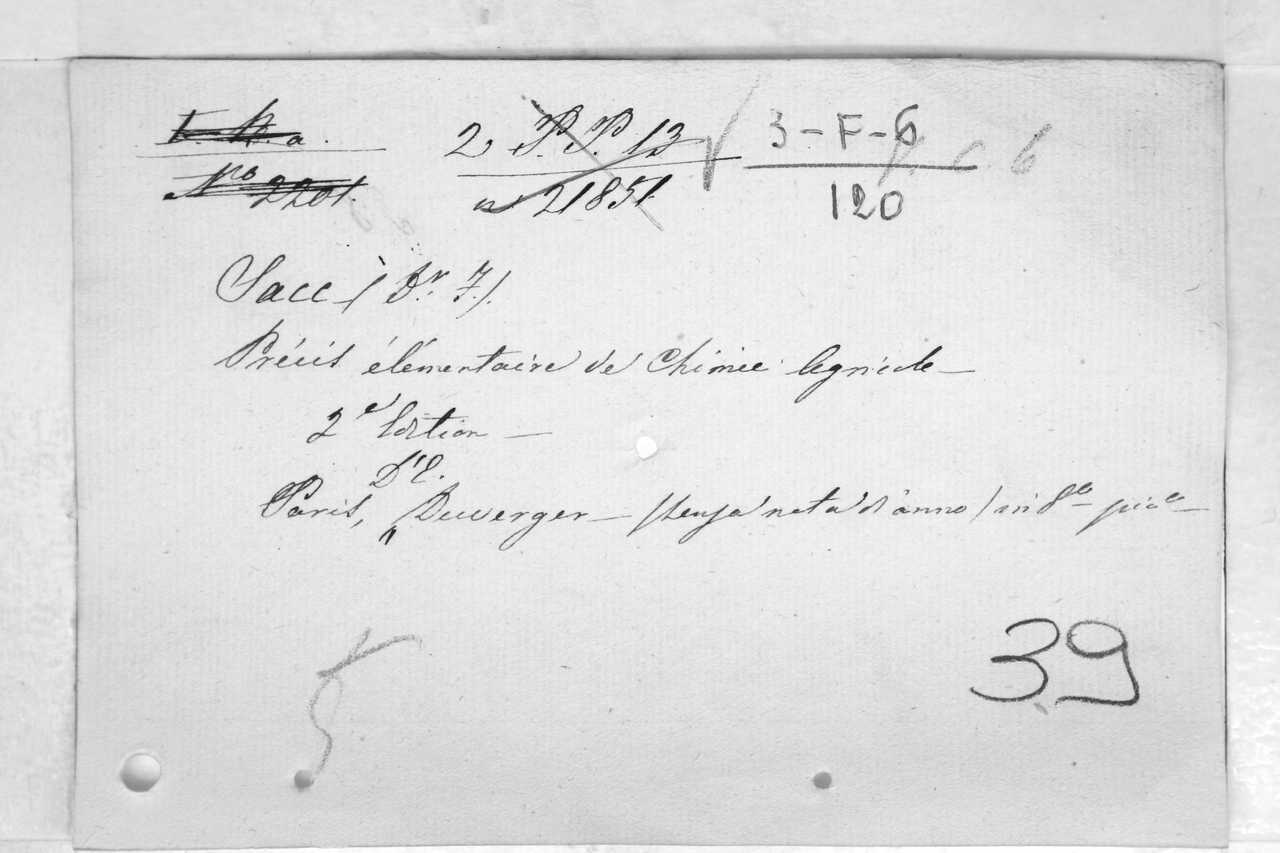 2 P. P. 13
3-F-6 6
Nro 2201.
n° 21851
120
Sacc (Dr. F.)
Précis élémentaire de Chimie Agricole —
2e Edition —
D'E.
Paris, Duverger — (senza nota d'anno) in 8° pic°—
39